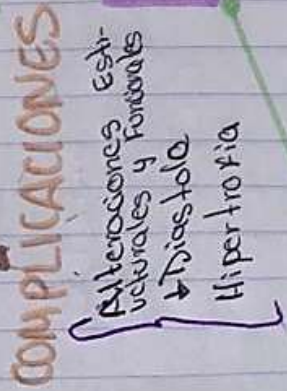 COMPLICACIONES
Alteraciones Esti-
ucturales y Funcionales
↓Diastola
Hipertrofia